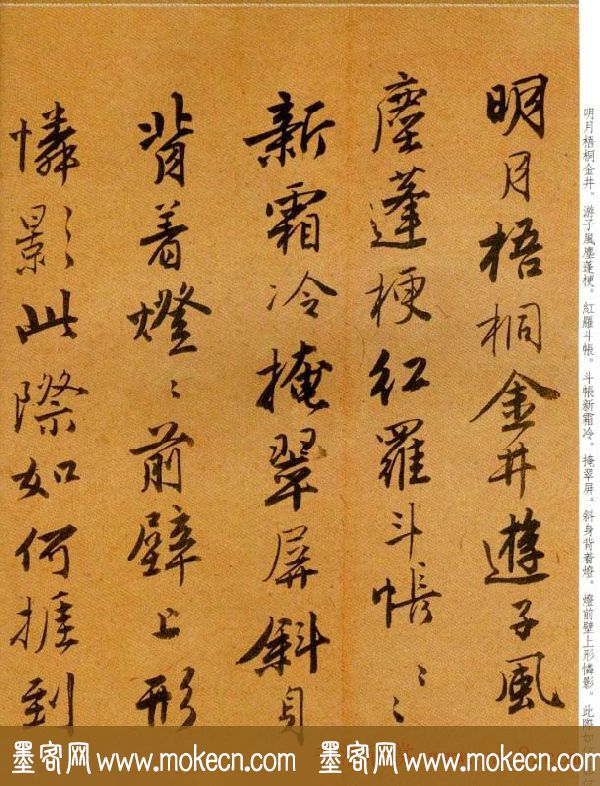 明月梧桐金井遊子風
塵蓬梗紅羅斗帳〻〻
新霜冷掩翠屏斜身
背着燈〻前壁上形
憐影此際如何捱到
明月梧桐金井。游子風塵蓬梗。紅羅斗帳。斗帳新霜冷。掩翠屏。斜身背着燈。燈前壁上形憐影。此際
墨客网 www.mokecn.com 墨客网 www.mokecn.com